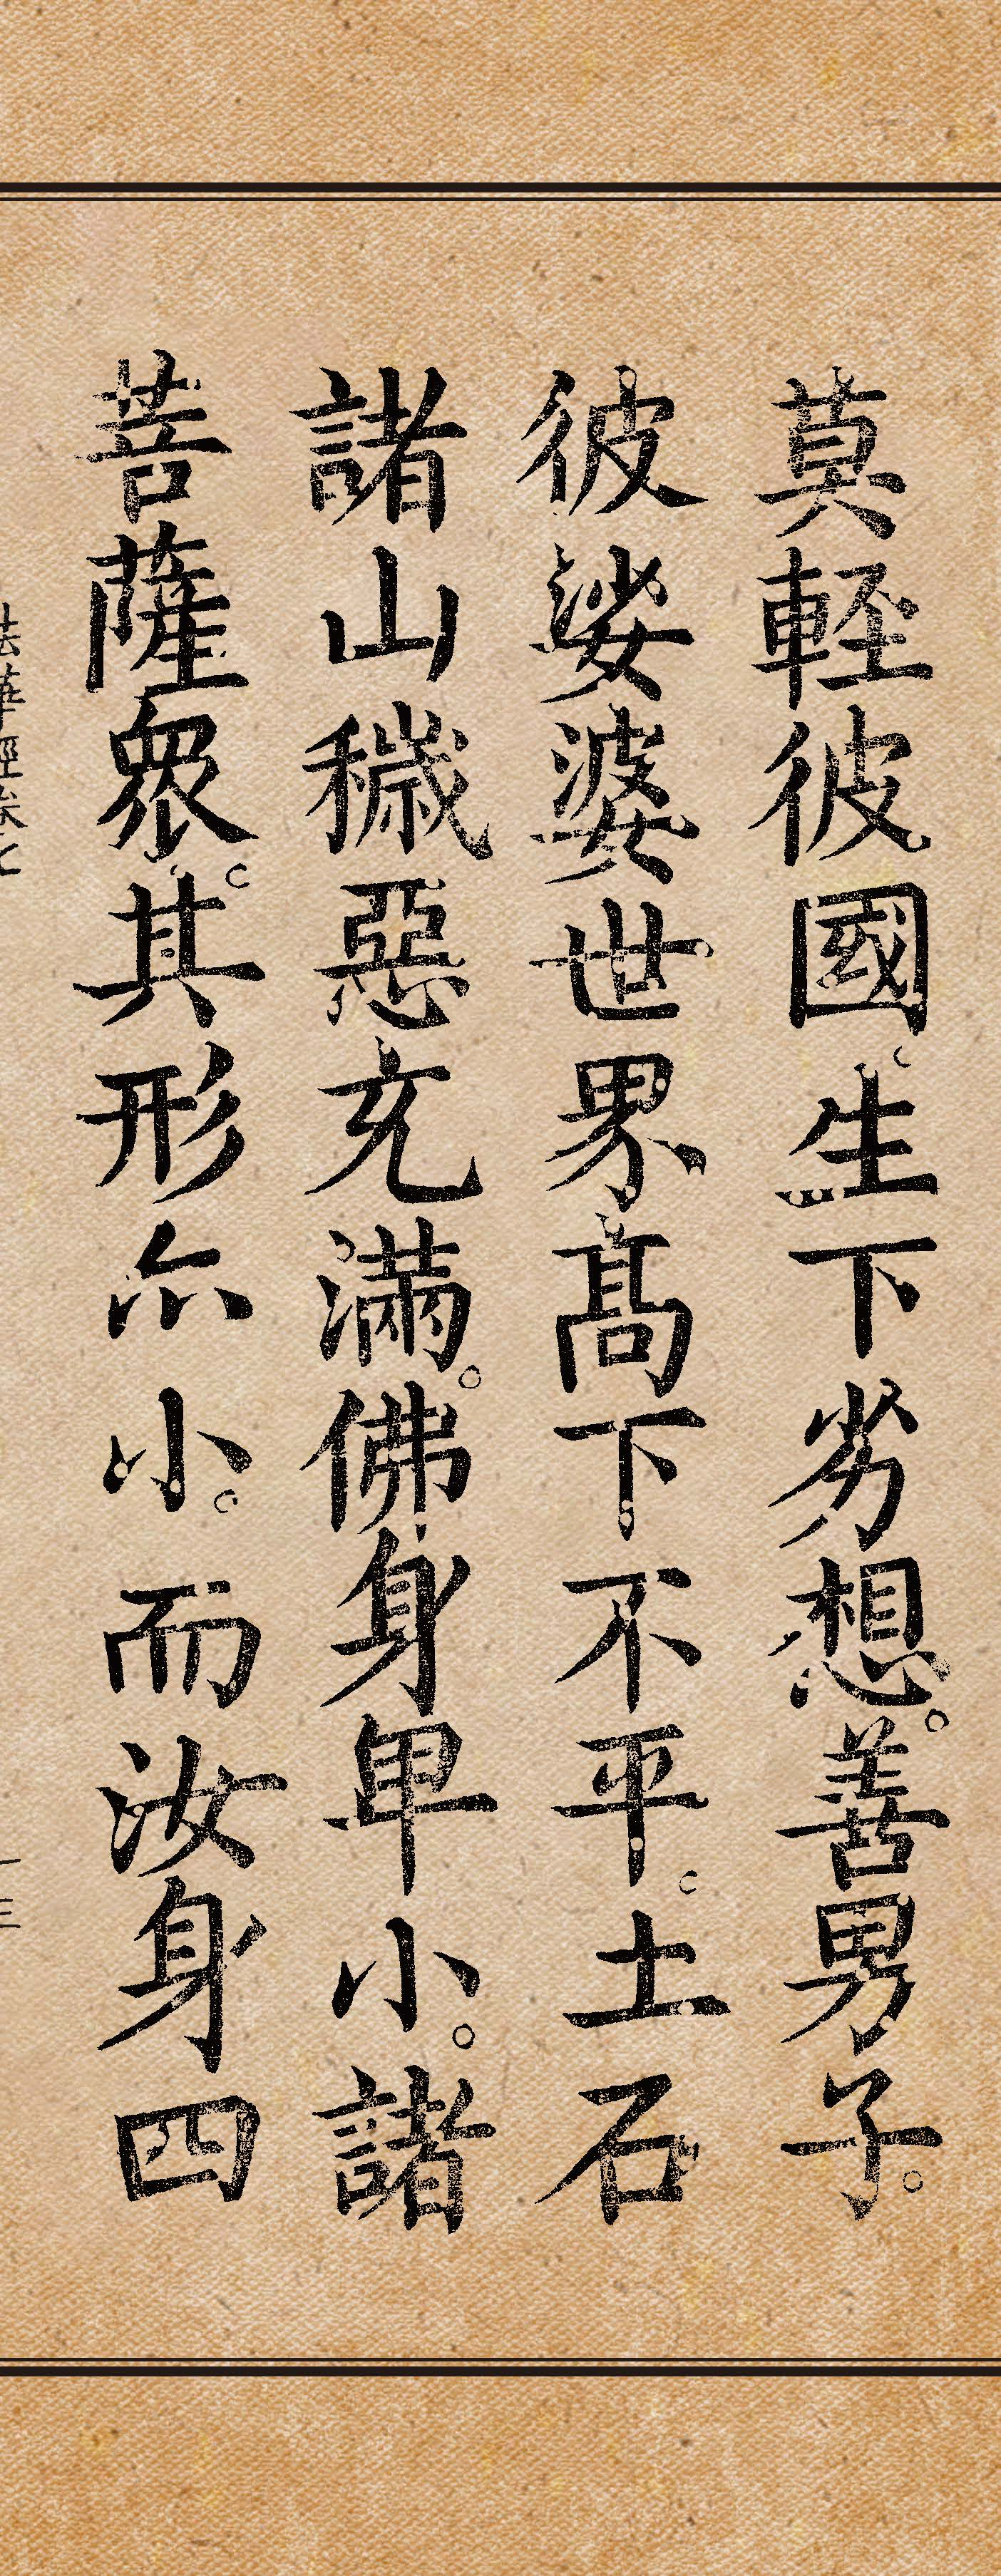 莫輕彼國。生下劣想。善男子。
彼娑婆世界高下不平。土石
諸山穢惡充滿。佛身卑小。諸
菩薩眾。其形尒小。而汝身四